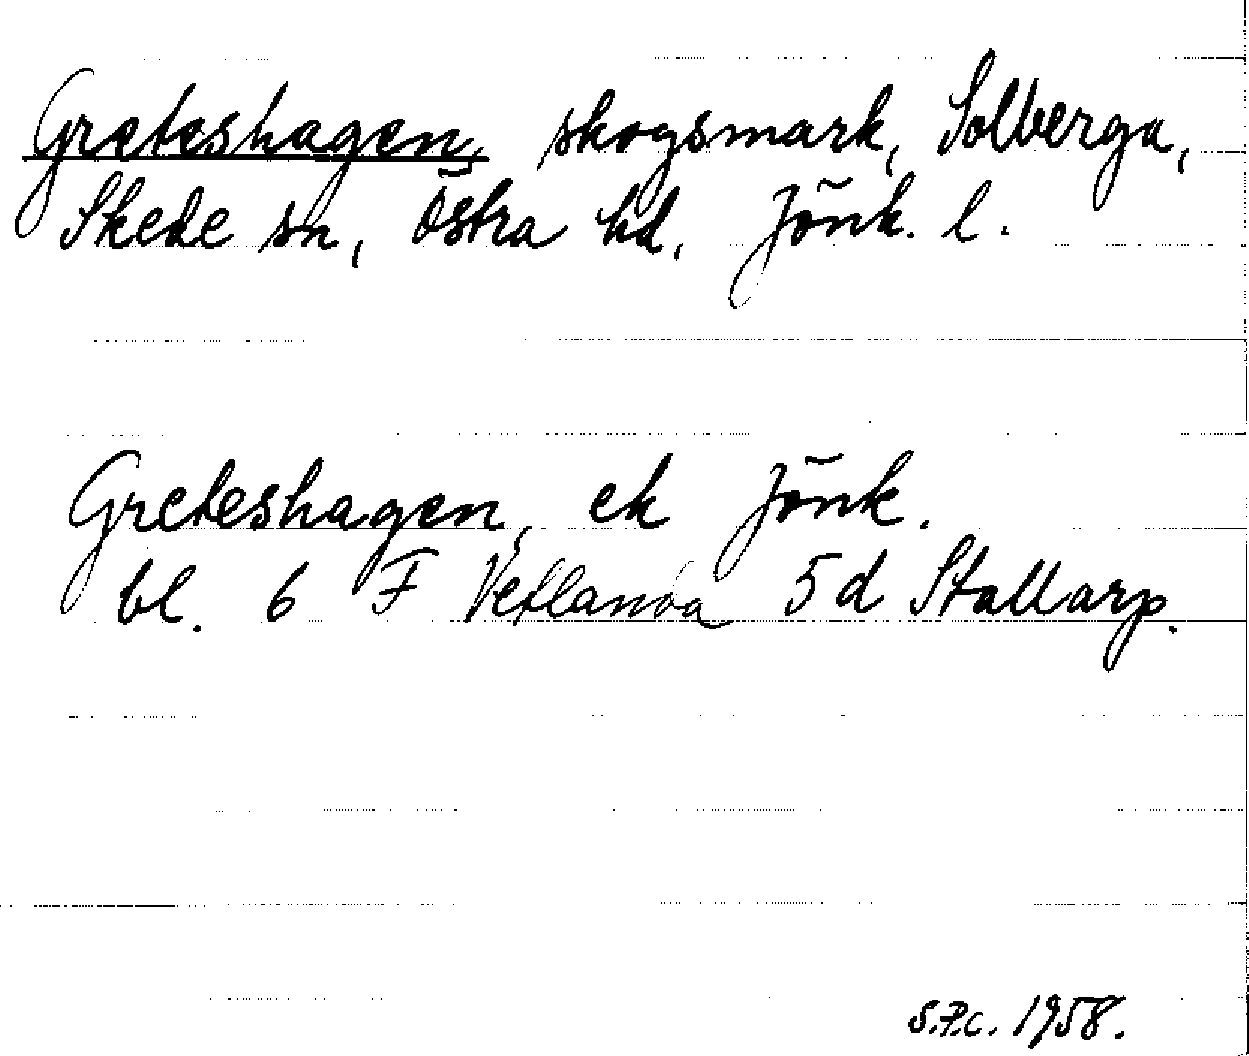 Greteshagen, skogsmark, Solberga,
Skede sn, Östra hd. Jönk. l.
Greteshagen, ek Jönk.
bl. 6 F Vetlanda 5d Stallarp.
S.P.C. 1958.